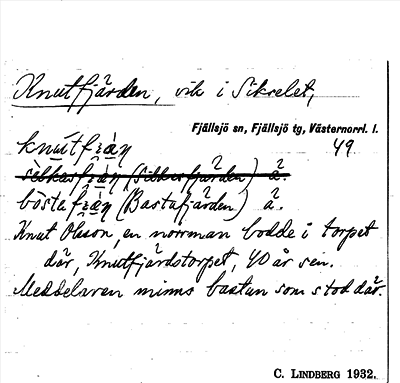 Knutfjärden, vik i Sikselet,
Fjällsjö sn, Fjällsjö tg, Västernorrl. l.
49
knutfi̯àṇ
sèlkasfi̯àṇ (Silkesfjärden) å².
båstafi̯àṇ (Bastufjärden) å².
Knut Olsson, en norrman bodde i torpet
där, Knutfjärdstorpet, 40 år sen.
Meddelaren minns bastun som stod där.
C. LINDBERG 1932.